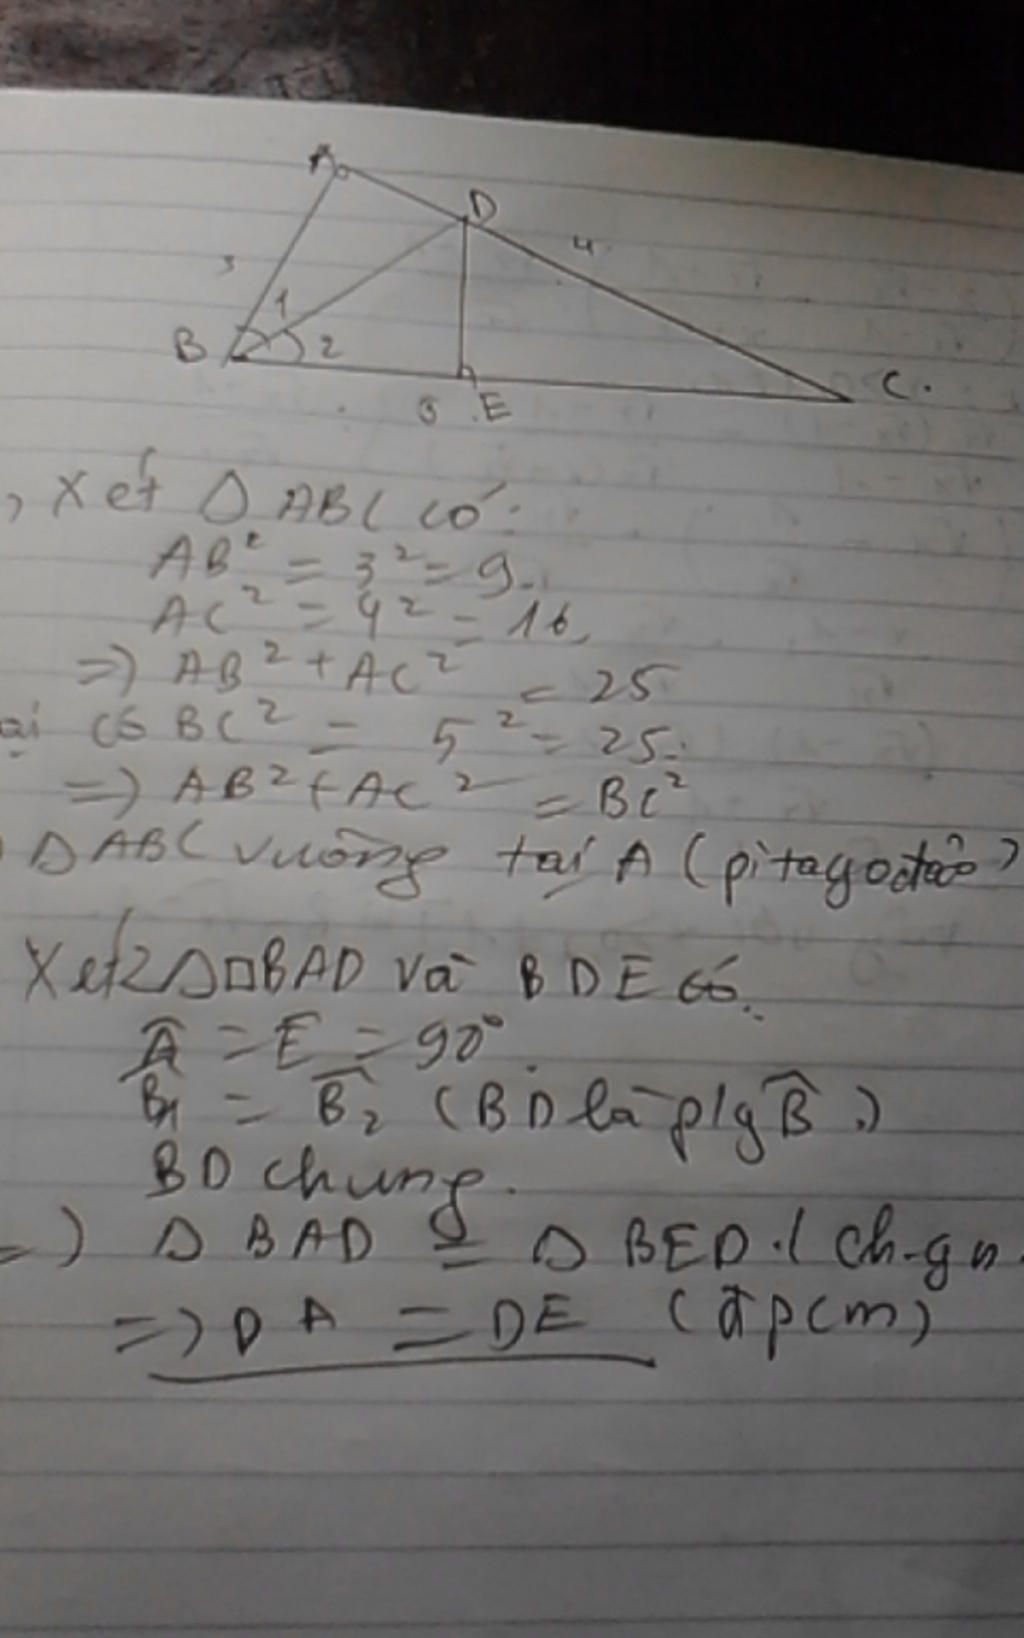 A
D
4
3
1
B
2
C.
E
, Xét Δ ABC có:
AB² = 3² = 9.
AC² = 4² = 16,
=) AB² + AC² = 25
ại có BC² = 5² = 25.
=) AB² + AC² = BC²
Δ ABC vuông tại A (pitago đảo)
Xét 2 Δ□BAD và BDE có.
Â = E = 90°
B̂₁ = B̂₂ (BD là p/g B̂.)
BD chung.
=) Δ BAD = Δ BED.( Ch-gn
=) DA = DE (đpcm)